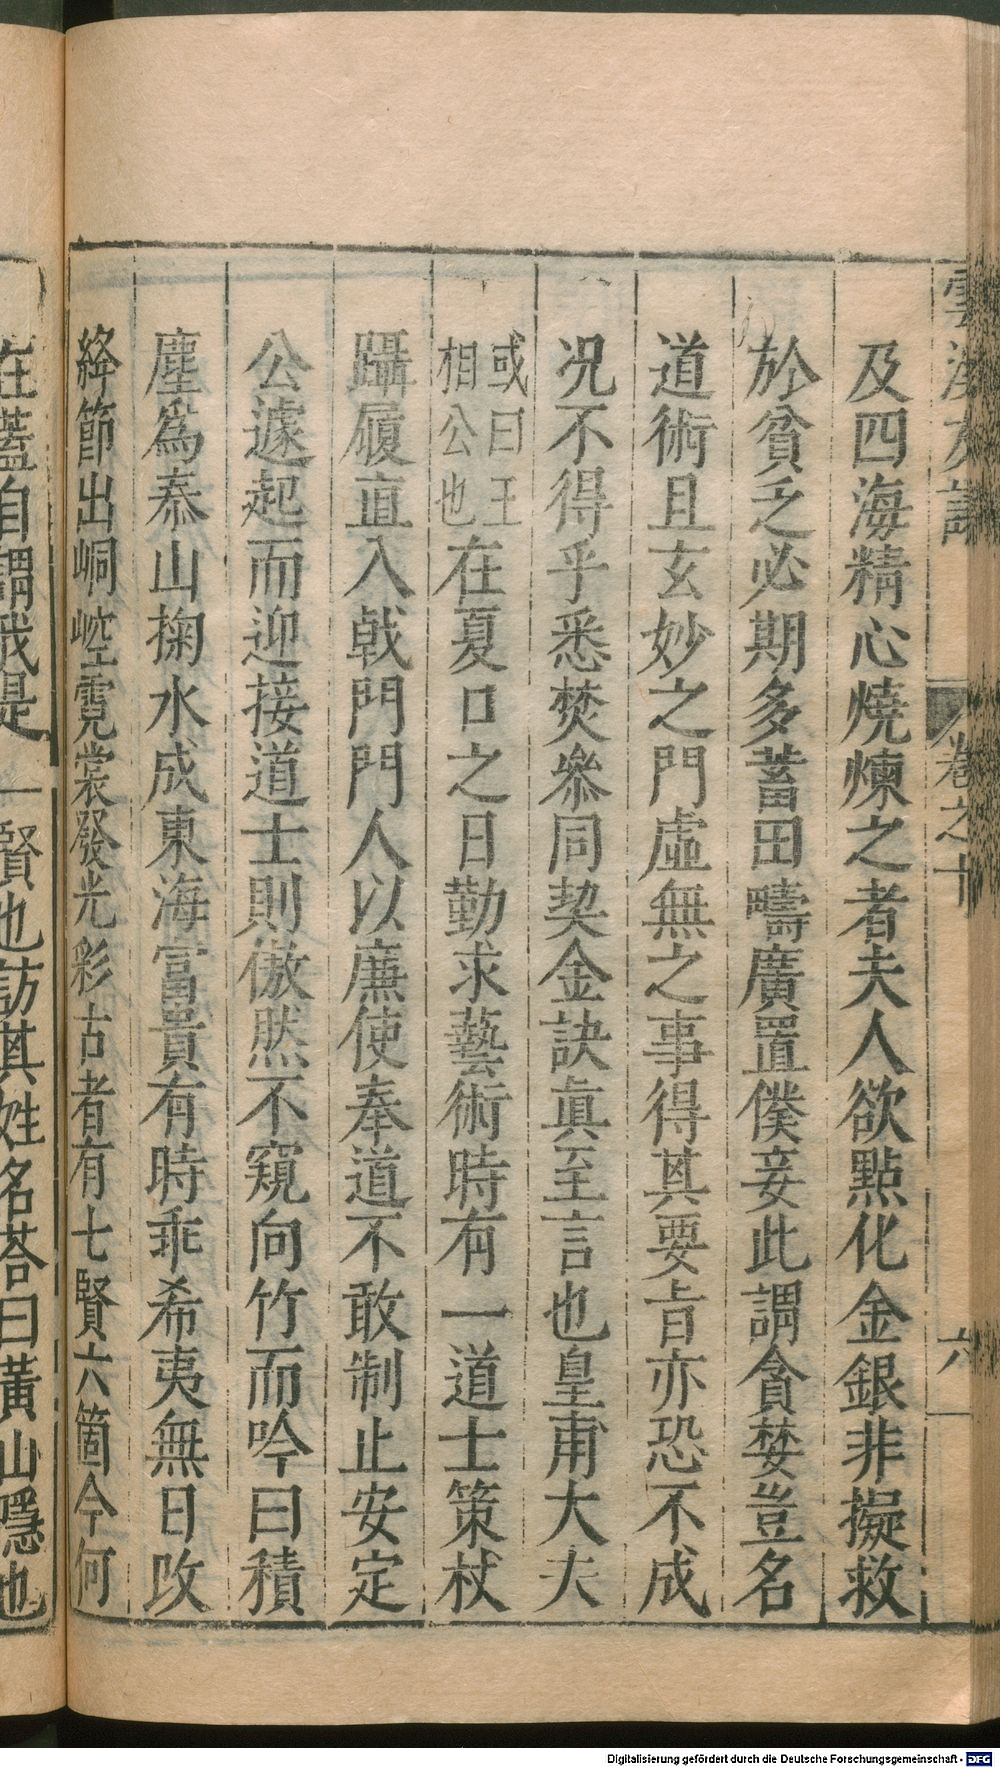 雲溪友議 卷之十 六
及四海精心燒煉之者夫人欲點化金銀非擬救
於貧乏必期多蓄田疇廣置僕妾此謂貪婪豈名
道術且玄妙之門虛無之事得其要旨亦恐不成
況不得乎悉焚叅同契金訣眞至言也皇甫大夫
或曰王相公也在夏口之日勤求藝術時有一道士策杖
躡履直入戟門門人以廉使奉道不敢制止安定
公遽起而迎接道士則傲然不窺向竹而吟曰積
塵爲泰山掬水成東海富貴有時乖希夷無日改
絳節出峒崆霓裳發光彩古者有七賢六箇今何
在蓋自謂我是一賢也訪其姓名荅曰黃山隱也
Digitalisierung gefördert durch die Deutsche Forschungsgemeinschaft - DFG